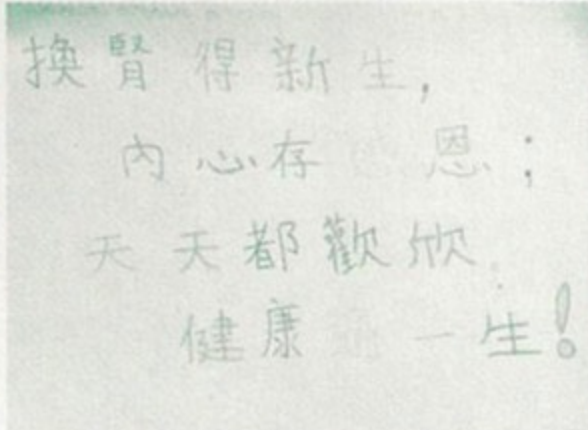 換腎得新生,
內心存恩;
天天都歡欣
健康一生!